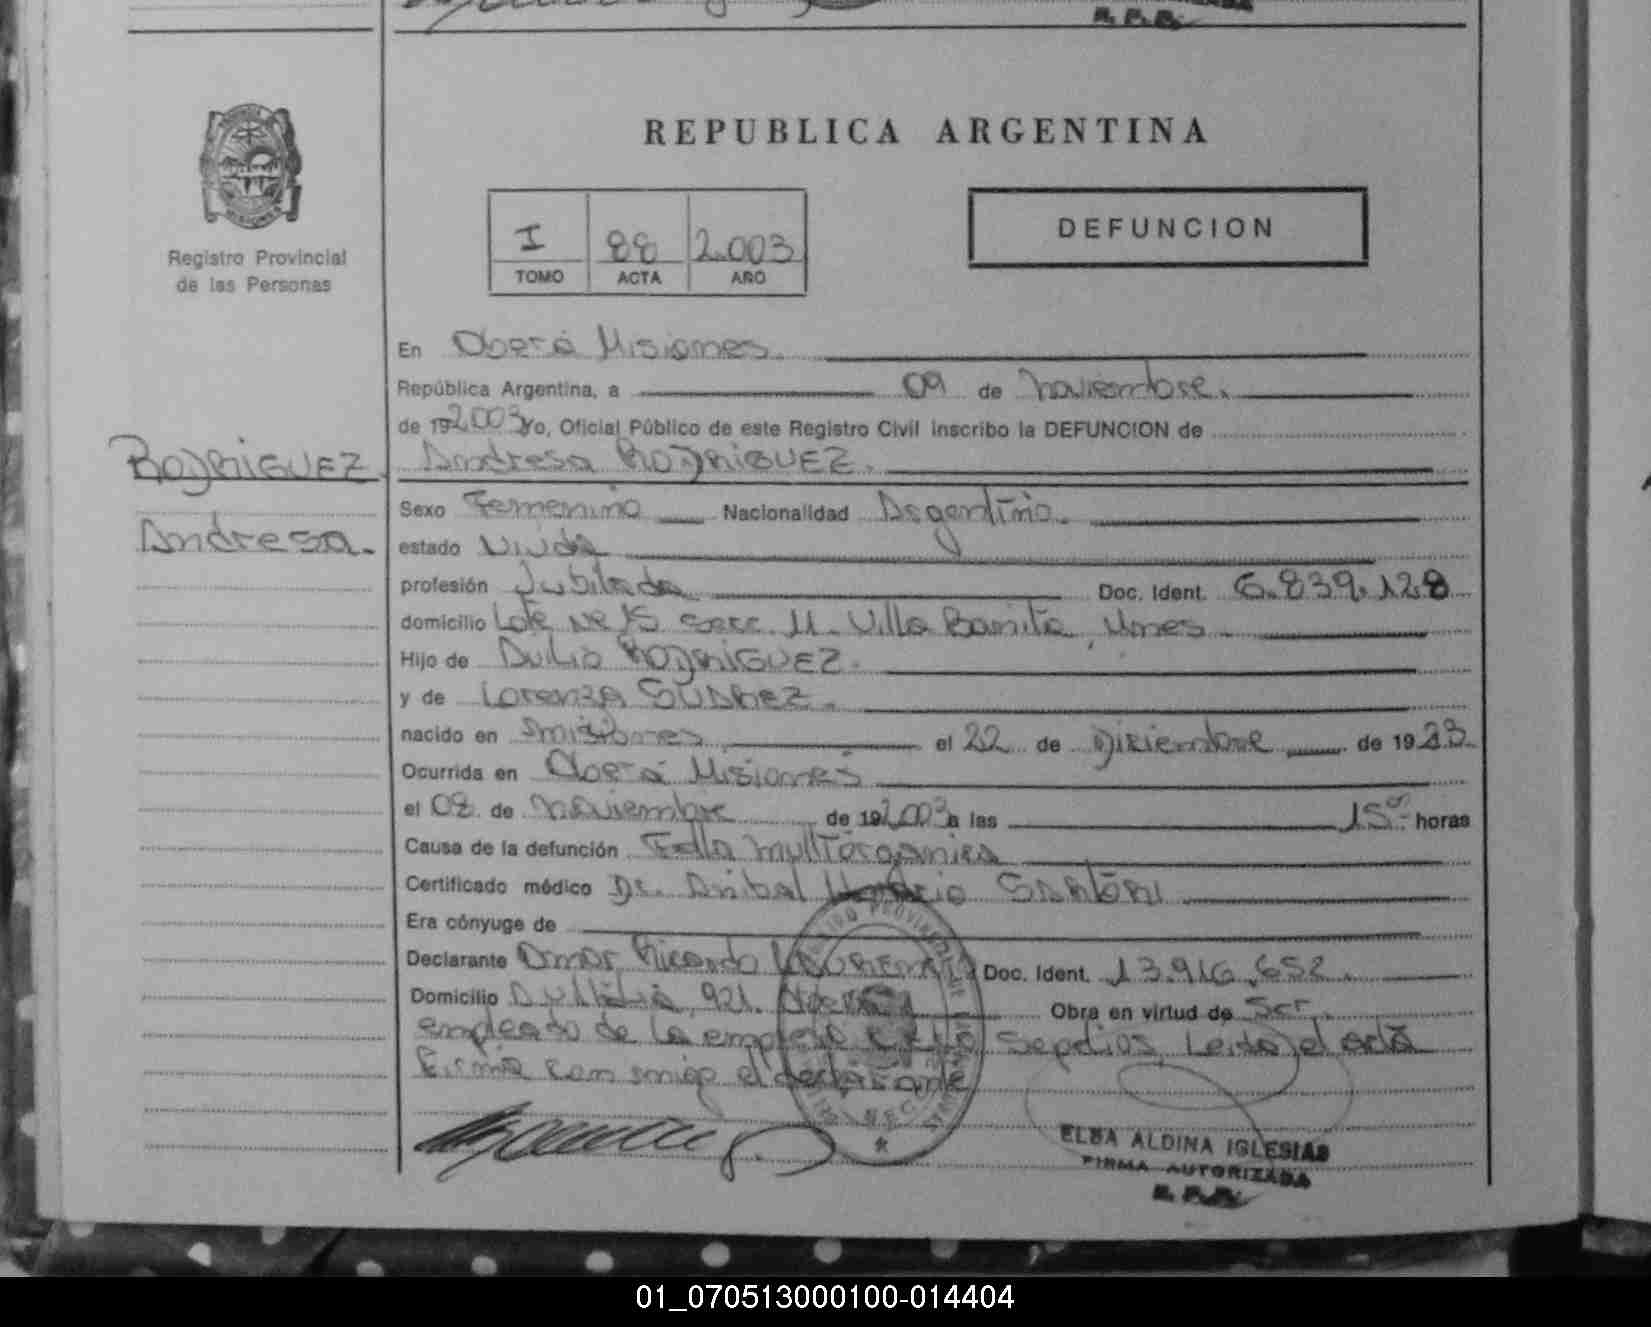 R. P. P.
REPUBLICA ARGENTINA
Registro Provincial
de las Personas
I 88 2.003
TOMO ACTA AÑO
DEFUNCION
En Oberá Misiones.
República Argentina, a 09 de noviembre.
de 19 2003 Yo, Oficial Público de este Registro Civil inscribo la DEFUNCION de
RODRIGUEZ
Andresa RODRIGUEZ.
Andresa.
Sexo Femenino Nacionalidad Argentina.
estado Viuda
profesión Jubilada Doc. Ident. 6.839.128
domicilio Lote Nº 15 secc. Villa Bonita, Mnes.
Hijo de Duilio RODRIGUEZ.
y de Lorenza SUAREZ.
nacido en Misiones el 22 de Diciembre de 1923
Ocurrida en Oberá Misiones
el 08 de noviembre de 19 2003 a las 15 horas
Causa de la defunción Falla multiorganica
Certificado médico Dr. Anibal SARTORI
Era cónyuge de
Declarante Omar Ricardo Doc. Ident. 13.916.652.
Domicilio 921. Oberá Obra en virtud de Ser
empleado de la empresa Sepelios, Leida el acta
firma con migo el declarante
ELBA ALDINA IGLESIAS
FIRMA AUTORIZADA
R. P. P.
01_070513000100-014404